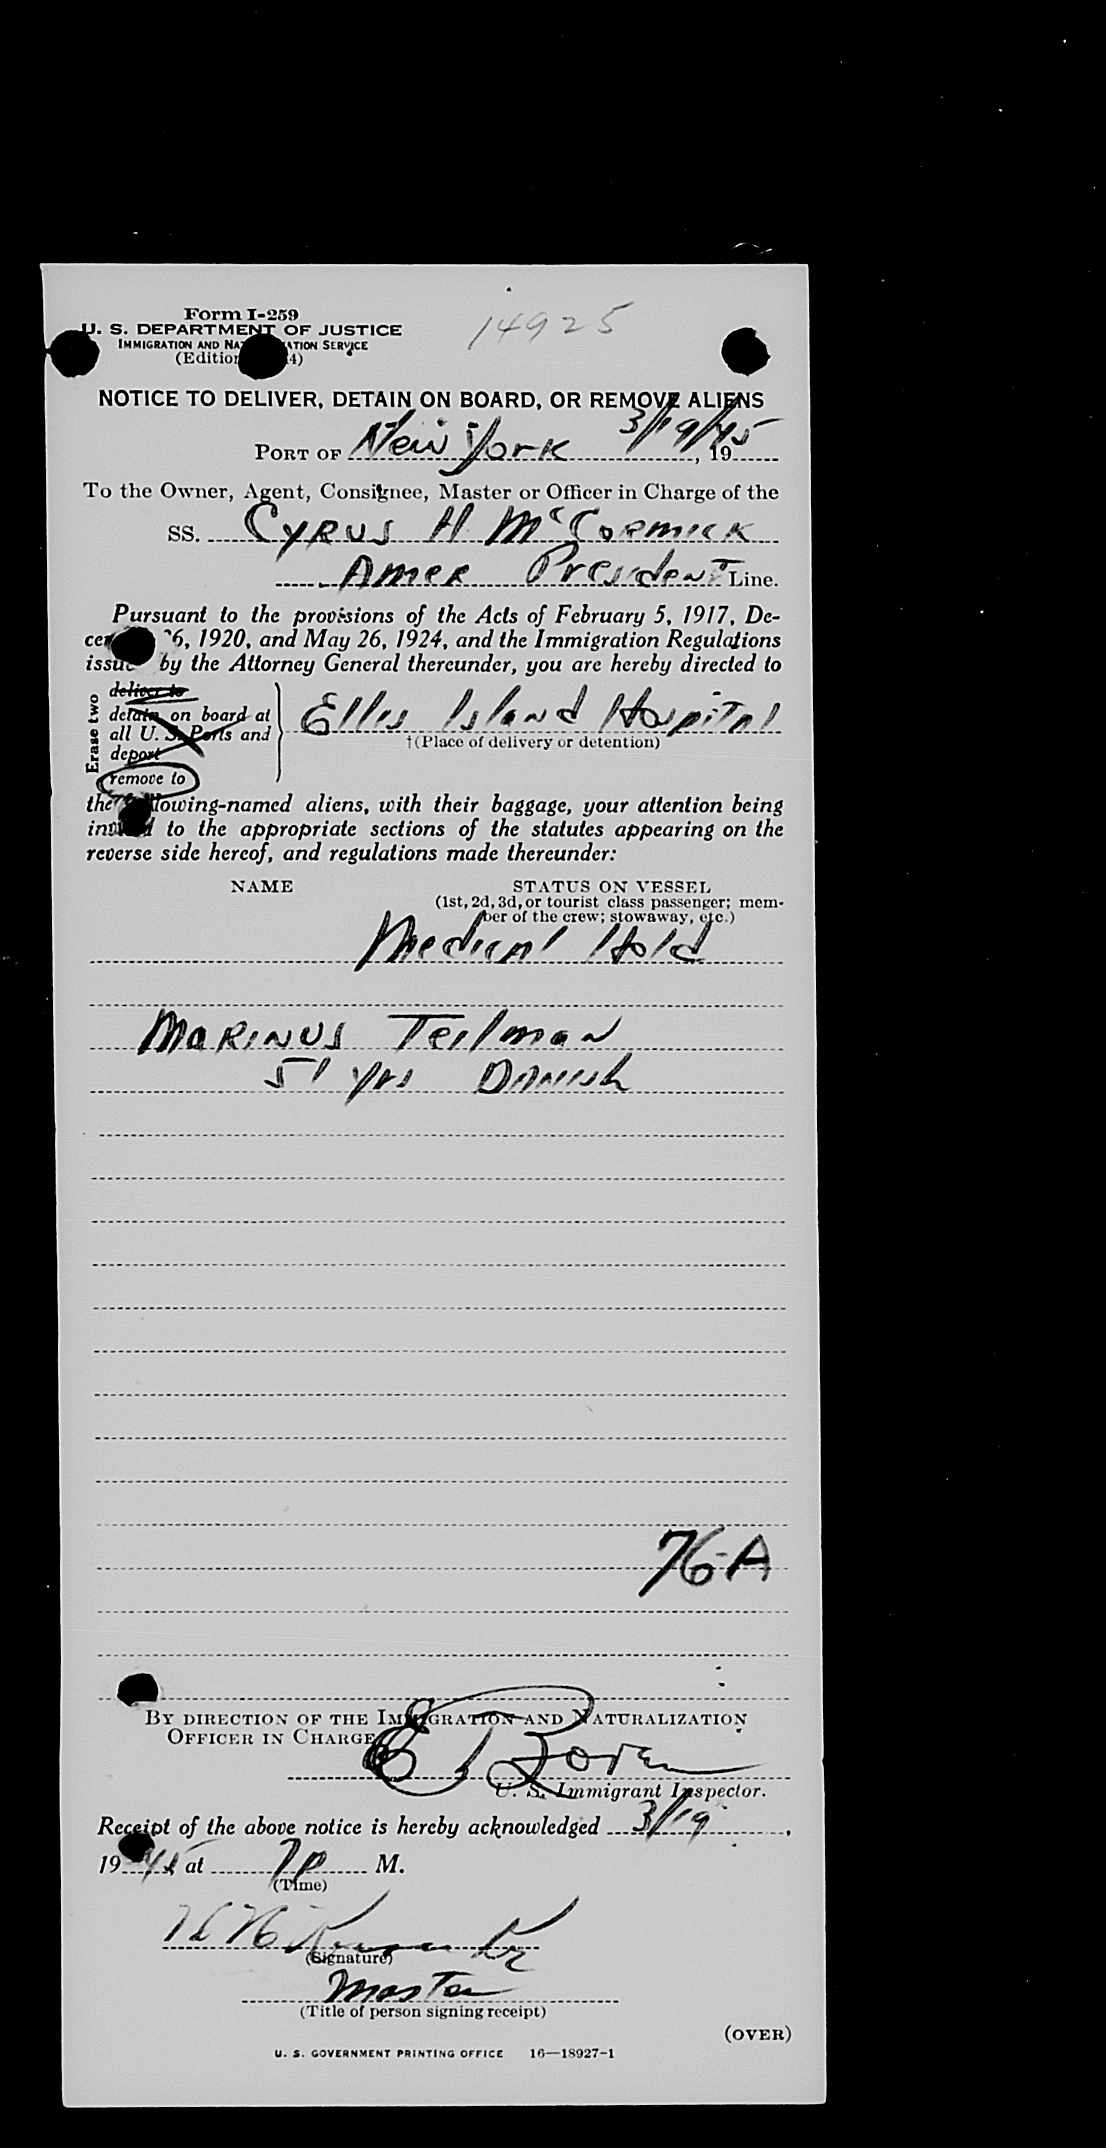 Form I-259
14925
U. S. DEPARTMENT OF JUSTICE
IMMIGRATION AND SERVICE
NOTICE TO DELIVER, DETAIN ON BOARD, OR REMOVE ALIENS
PORT OF New York 3/19/45, 19
To the Owner, Agent, Consignee, Master or Officer in Charge of the
SS. Cyrus H McCormick
Amer President Line.
Pursuant to the provisions of the Acts of February 5, 1917, De-
6, 1920, and May 26, 1924, and the Immigration Regulations
by the Attorney General thereunder, you are hereby directed to
Erase two
deliver to
detain on board at
all U. S. Ports and
deport
remove to
Ellis Island Hospital
†(Place of delivery or detention)
the following-named aliens, with their baggage, your attention being
to the appropriate sections of the statutes appearing on the
reverse side hereof, and regulations made thereunder:
NAME STATUS ON VESSEL
(1st, 2d, 3d, or tourist class passenger; mem-
ber of the crew; stowaway, etc.)
Medical Hold
Marinus Teilman
51 yrs Danish
76-A
BY DIRECTION OF THE IMMIGRATION AND NATURALIZATION
OFFICER IN CHARGE
E
U. S. Immigrant Inspector.
Receipt of the above notice is hereby acknowledged 3/19,
19 45 at 7 P M.
(Time)
(Signature)
Master
(Title of person signing receipt)
(OVER)
U. S. GOVERNMENT PRINTING OFFICE 16—18927-1